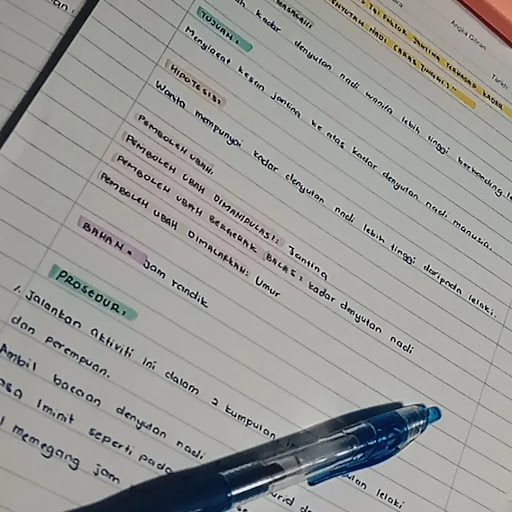 Angka Giliran:
Tarikh
TUJUAN:
kadar denyutan nadi wanita lebih tinggi berbanding
Menyiasat kesan jantina ke atas kadar denyutan nadi manusia.
HIPOTESIS:
Wanita mempunyai kadar denyutan nadi lebih tinggi daripada lelaki.
PEMBOLEH UBAH:
PEMBOLEH UBAH DIMANIPULASI: Jantina
PEMBOLEH UBAH BERGERAK BALAS: kadar denyutan nadi
PEMBOLEH UBAH DIMALARKAN: Umur
BAHAN: Jam randik
PROSEDUR:
1. Jalankan aktiviti ini dalam 2 kumpulan
lelaki
dan perempuan.
Ambil bacaan denyutan nadi
1 minit seperti pada
memegang jam